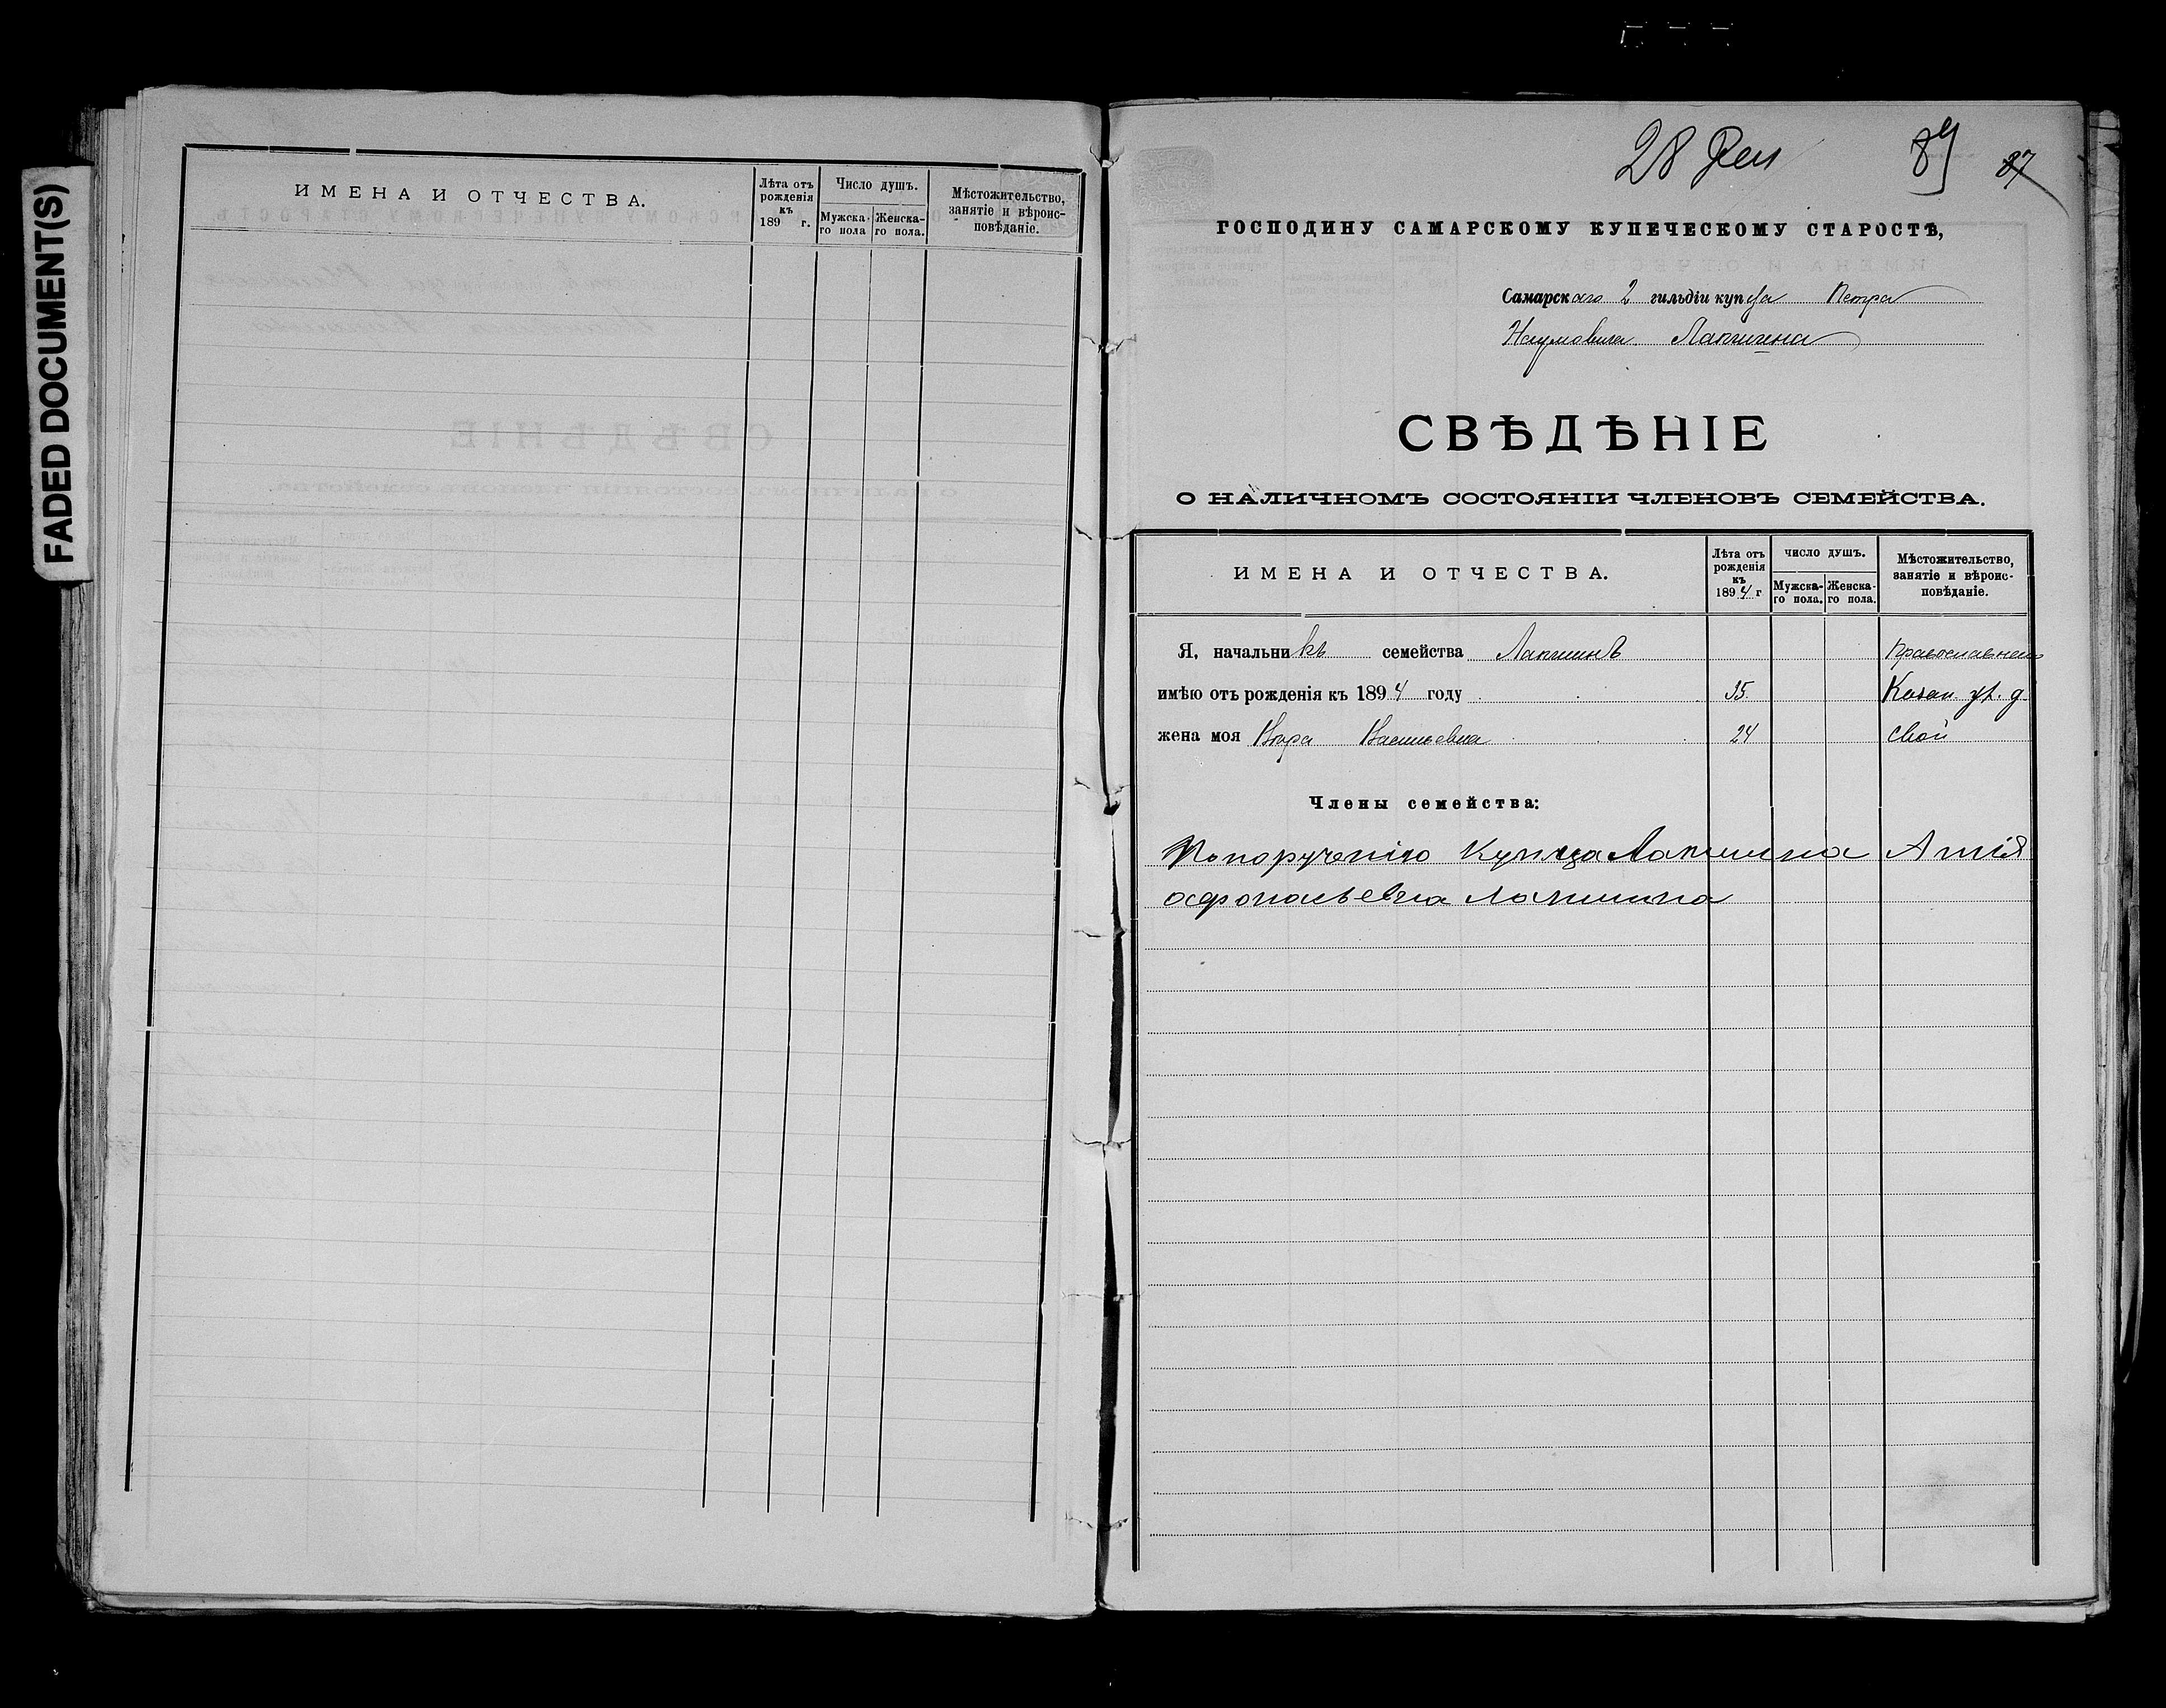 FADED DOCUMENT(S)
ИМЕНА И ОТЧЕСТВА.
Лѣта отъ рожденія къ 189 г.
Число душъ.
Мужска-го пола
Женска-го пола.
Мѣстожительство, занятіе и вѣроис-повѣданіе.
28 89 87
ГОСПОДИНУ САМАРСКОМУ КУПЕЧЕСКОМУ СТАРОСТѢ,
Самарскаго 2 гильдіи купца Петра
Наумовича Лапшина
СВѢДѢНІЕ
О НАЛИЧНОМЪ СОСТОЯНІИ ЧЛЕНОВЪ СЕМЕЙСТВА.
ИМЕНА И ОТЧЕСТВА.
Лѣта отъ рожденія къ 1894 г
ЧИСЛО ДУШЪ.
Мужска-го пола.
Женска-го пола.
Мѣстожительство, занятіе и вѣроис-повѣданіе.
Я, начальникъ семейства Лапшинъ Православнаго
имѣю отъ рожденія къ 1894 году 35 Казан. ул. д.
жена моя Вѣра Васильевна 24 свой
Члены семейства:
По порученію Купца Лапшина
Лапшина